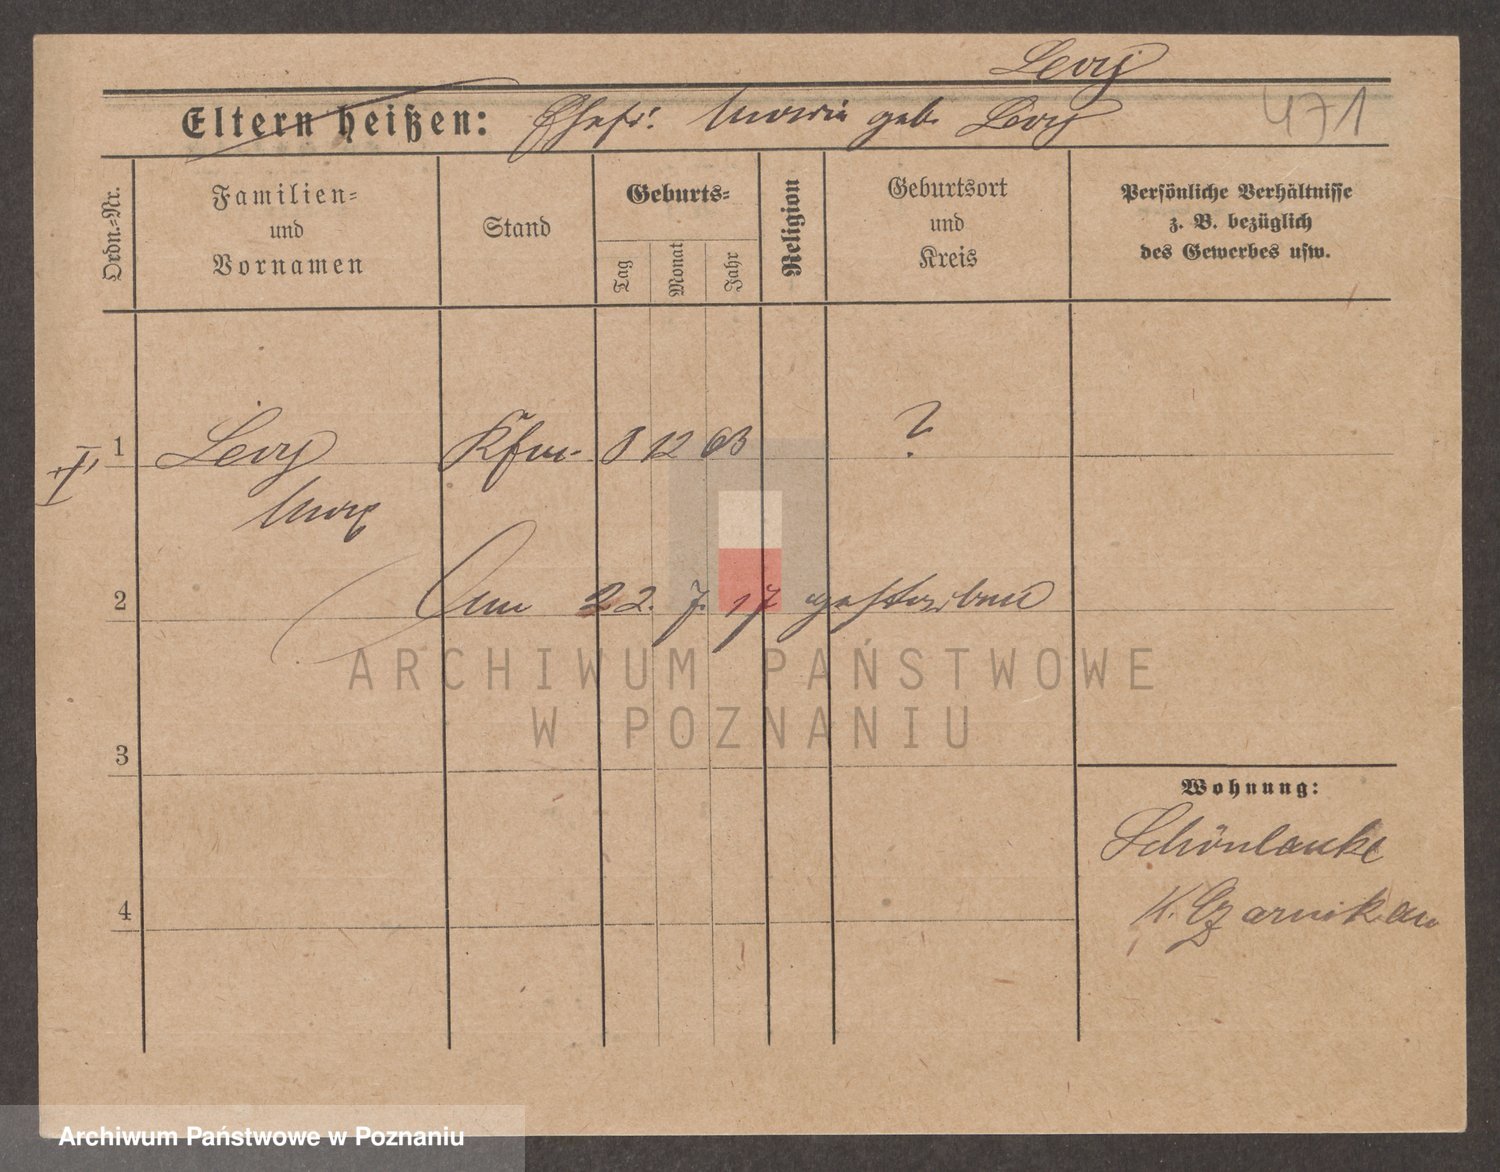 Levy
Eltern heißen: Ehefr. Marie geb. Levy
471
Ordn.-Nr.
Familien-
und
Vornamen
Stand
Geburts-
Tag
Monat
Jahr
Religion
Geburtsort
und
Kreis
Persönliche Verhältnisse
z. B. bezüglich
des Gewerbes usw.
1 Levy Kfm. 8 12 63 ?
Max
2 Am 22. 7. 17 gestorben
ARCHIWUM PAŃSTWOWE
W POZNANIU
3
Wohnung:
Schönlanke
K. Czarnikau
4
Archiwum Państwowe w Poznaniu